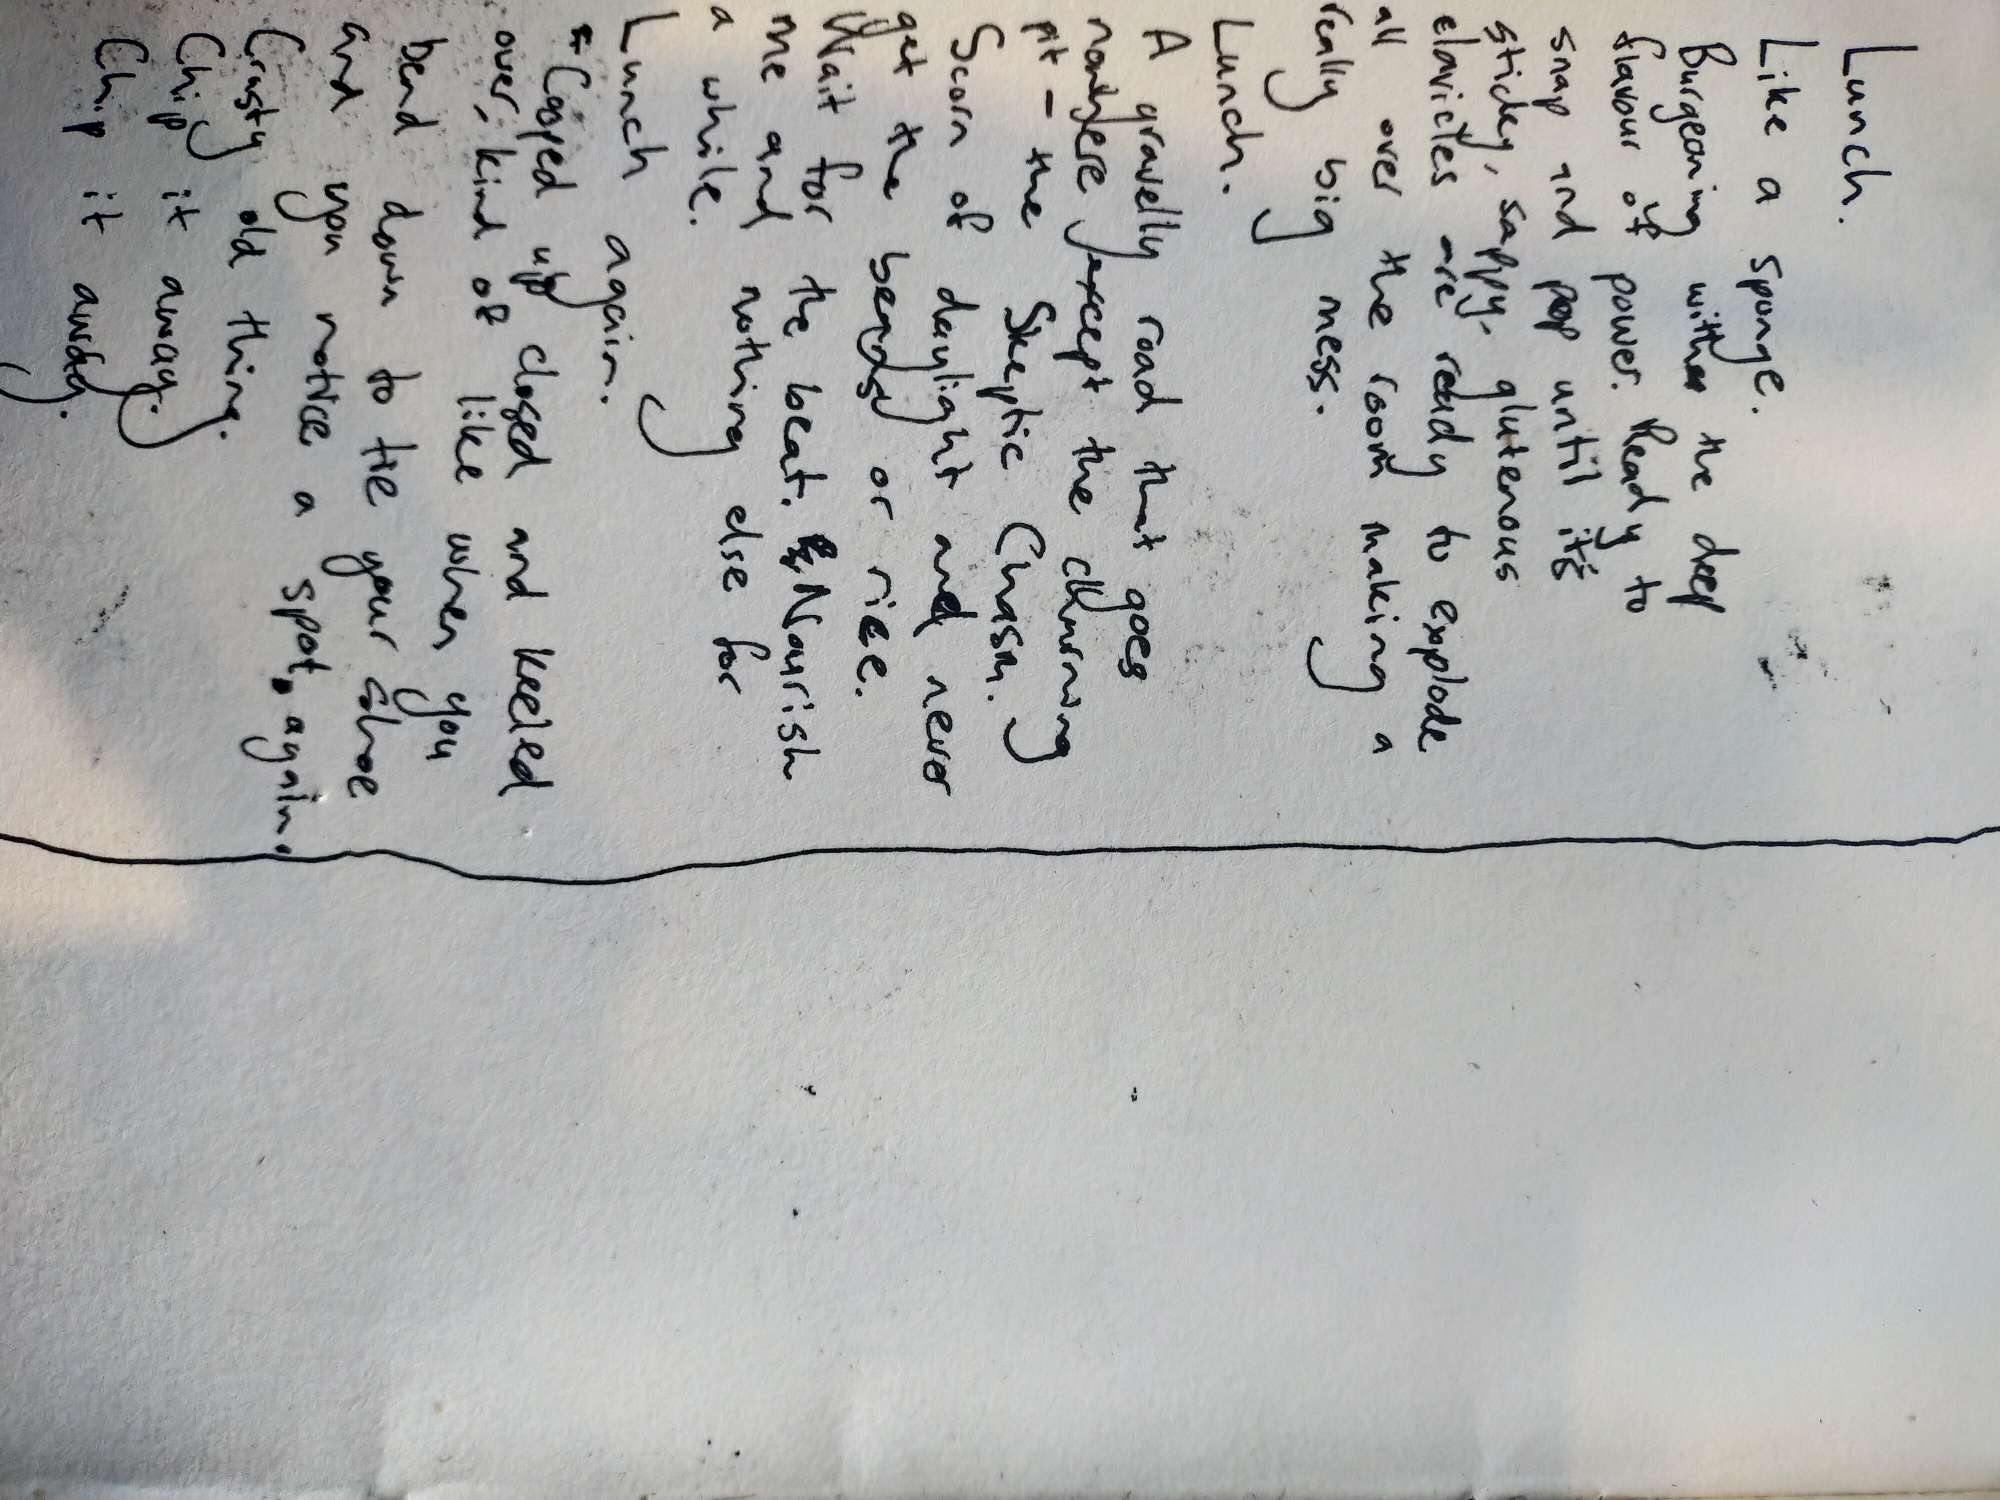 Lunch.
Like a sponge.
Burgeoning with the deep
flavour of power. Ready to
snap and pop until it's
sticky, sappy, glutenous
clavicles are ready to explode
all over the room making a
really big mess.
Lunch.
A gravelly road that goes
nowhere except the churning
pit - the Skeptic Chasm.
Scorn of daylight and never
get the bends or rice.
Wait for the beat. Nourish
me and nothing else for
a while.
Lunch again.
Cooped up closed and keeled
over, kind of like when you
bend down to tie your shoe
and you notice a spot, again.
Crusty old thing.
Chip it away.
Chip it away.